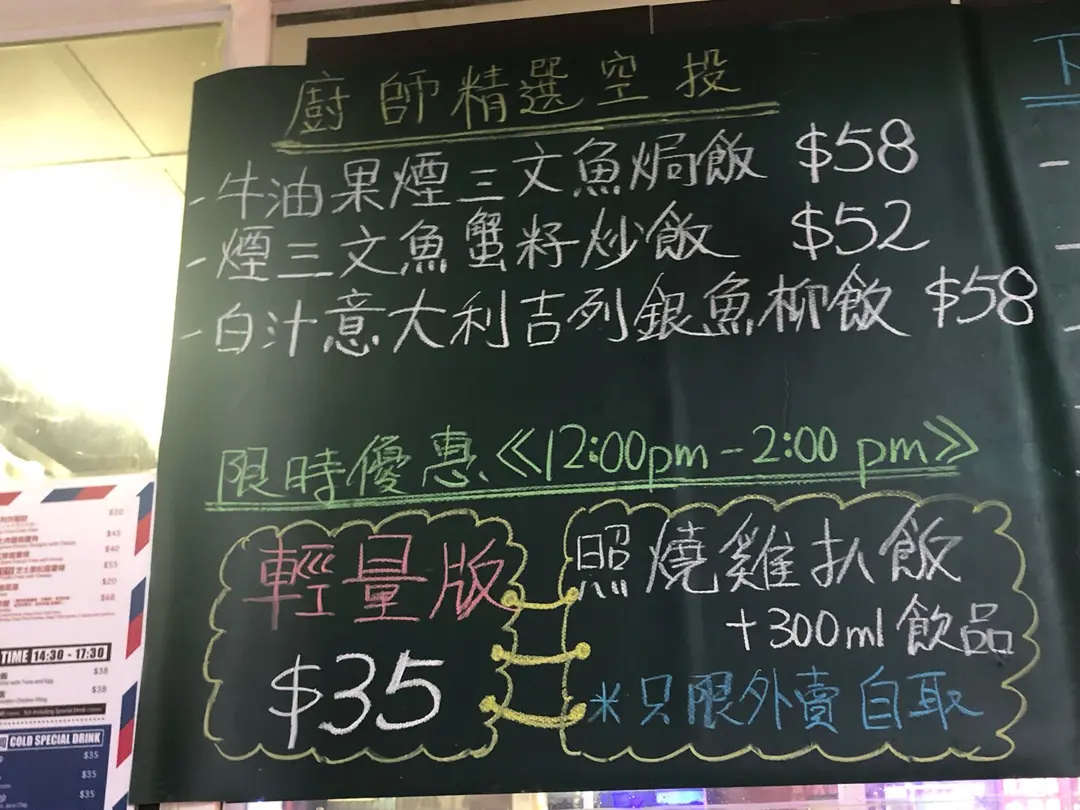 廚師精選空投
- 牛油果煙三文魚焗飯 $58
- 煙三文魚蟹籽炒飯 $52
- 白汁意大利吉列銀魚柳飯 $58
限時優惠《12:00pm - 2:00 pm》
輕量版
$35
照燒雞扒飯
+300ml 飲品
*只限外賣自取
$50
$45
$40
$53
$20
$48
TIME 14:30 - 17:30
$38
$38
COLD SPECIAL DRINK
$35
$35
$35